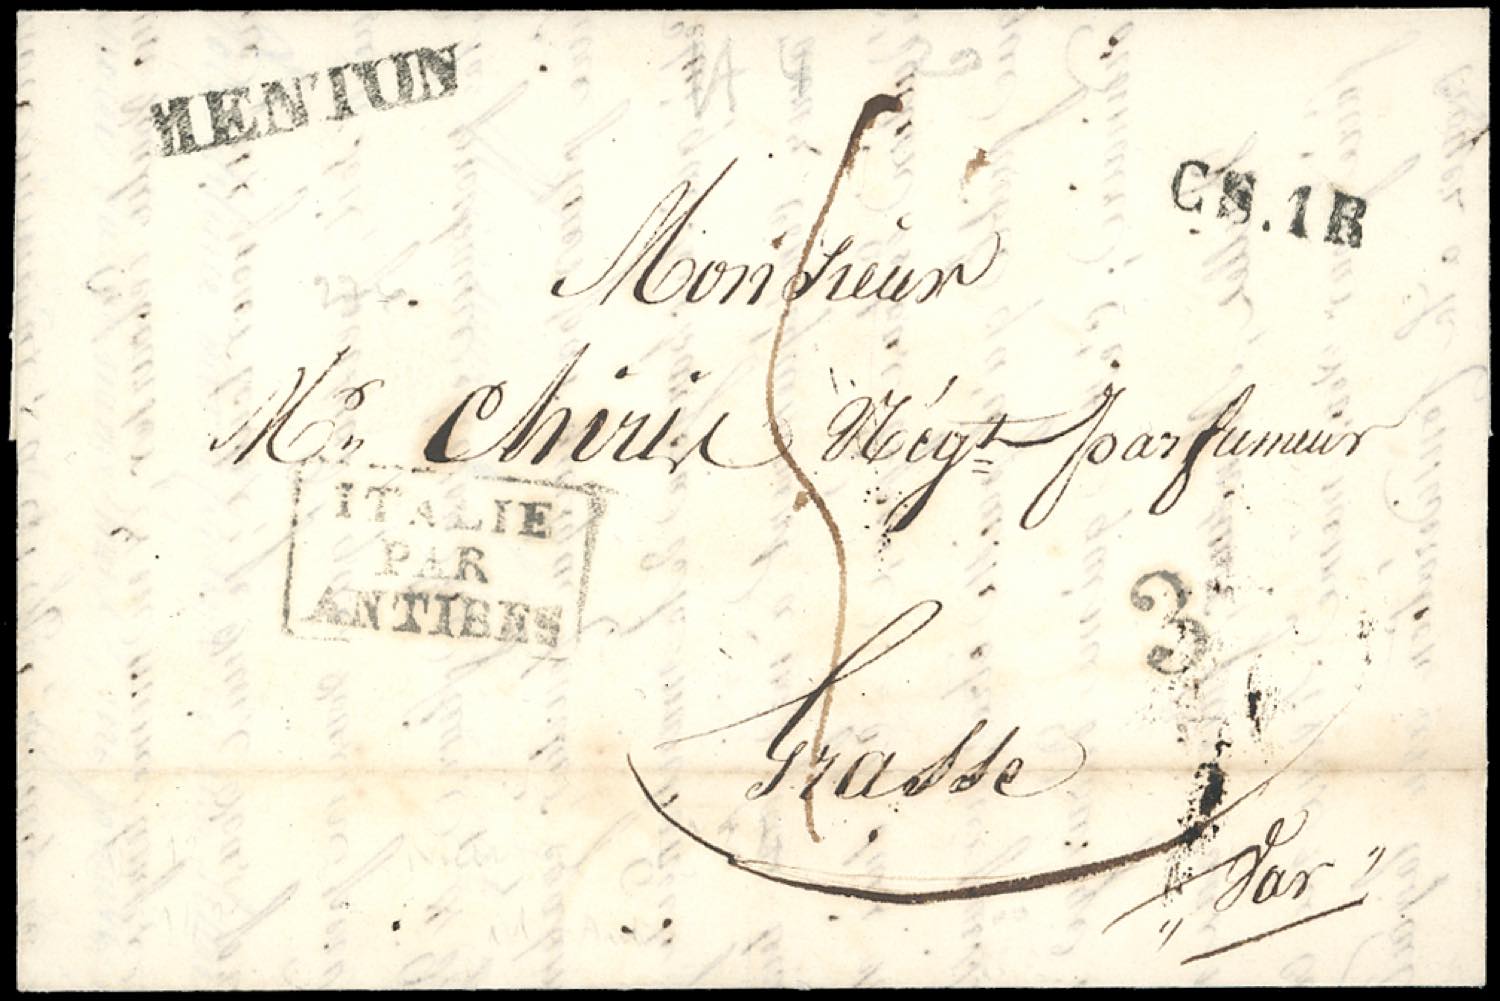 MENTON
CS.1R
Monsieur
Mr. Chiris Négt. parfumeur
ITALIE
PAR
ANTIBES
3
Grasse
"Var"